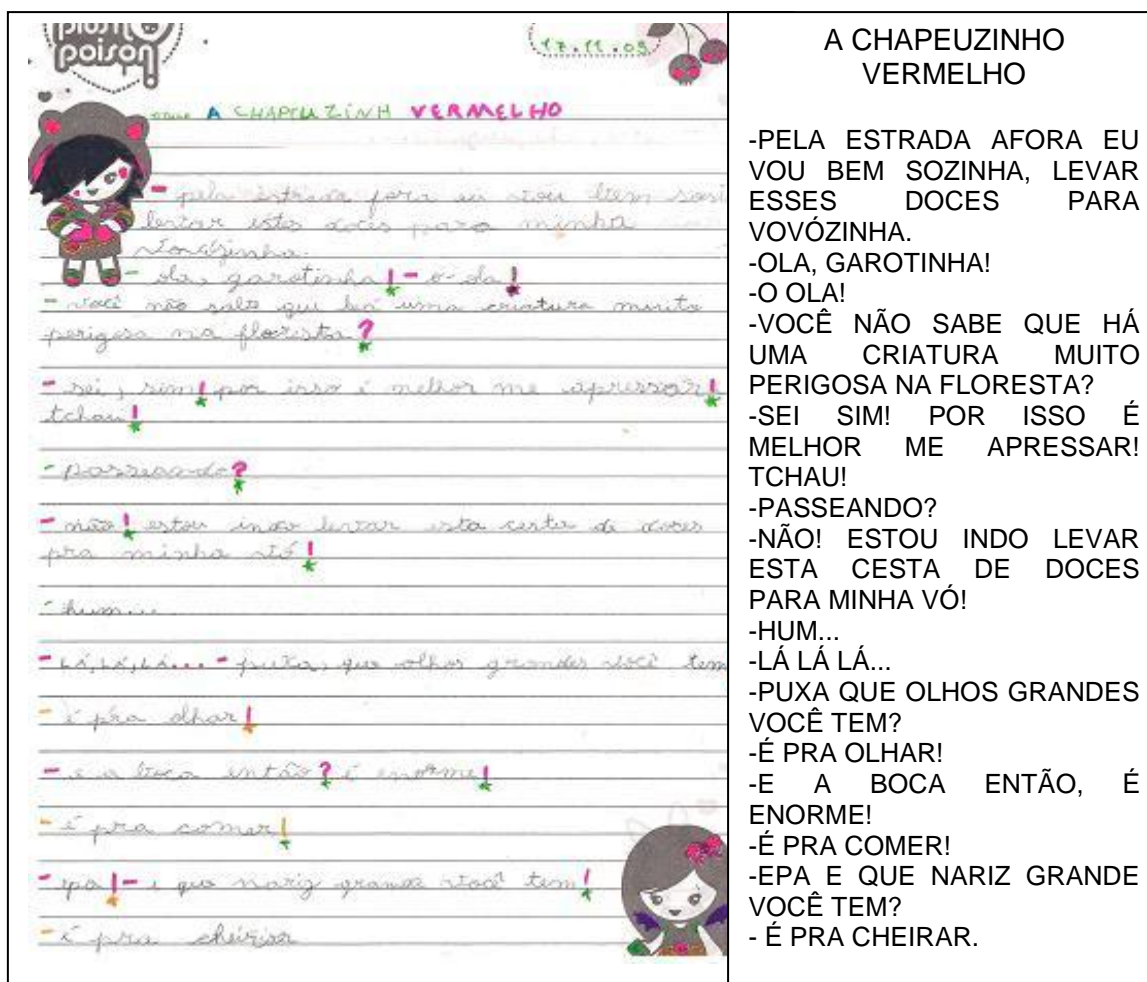 poison
17.11.09
A CHAPEUZINH VERMELHO
- pela estrada fora eu vou bem sosi
levar estes doces para minha
vovózinha.
- ola, garotinha! - o ola!
- você não sabe qui há uma criatura muito
perigosa na floresta?
- sei, sim! por isso é melhor me apressar!
tchau!
- passeando?
- não! estou indo levar esta cesta de doces
pra minha vó!
- hum...
- LÁ, LÁ, LÁ... - puxa, que olhos grandes você tem
- é pra olhar!
- e a boca então? é enorme!
- é pra comer!
- epa! - e que nariz grande você tem!
- é pra cheirar
A CHAPEUZINHO
VERMELHO
-PELA ESTRADA AFORA EU
VOU BEM SOZINHA, LEVAR
ESSES DOCES PARA
VOVÓZINHA.
-OLA, GAROTINHA!
-O OLA!
-VOCÊ NÃO SABE QUE HÁ
UMA CRIATURA MUITO
PERIGOSA NA FLORESTA?
-SEI SIM! POR ISSO É
MELHOR ME APRESSAR!
TCHAU!
-PASSEANDO?
-NÃO! ESTOU INDO LEVAR
ESTA CESTA DE DOCES
PARA MINHA VÓ!
-HUM...
-LÁ LÁ LÁ...
-PUXA QUE OLHOS GRANDES
VOCÊ TEM?
-É PRA OLHAR!
-E A BOCA ENTÃO, É
ENORME!
-É PRA COMER!
-EPA E QUE NARIZ GRANDE
VOCÊ TEM?
- É PRA CHEIRAR.